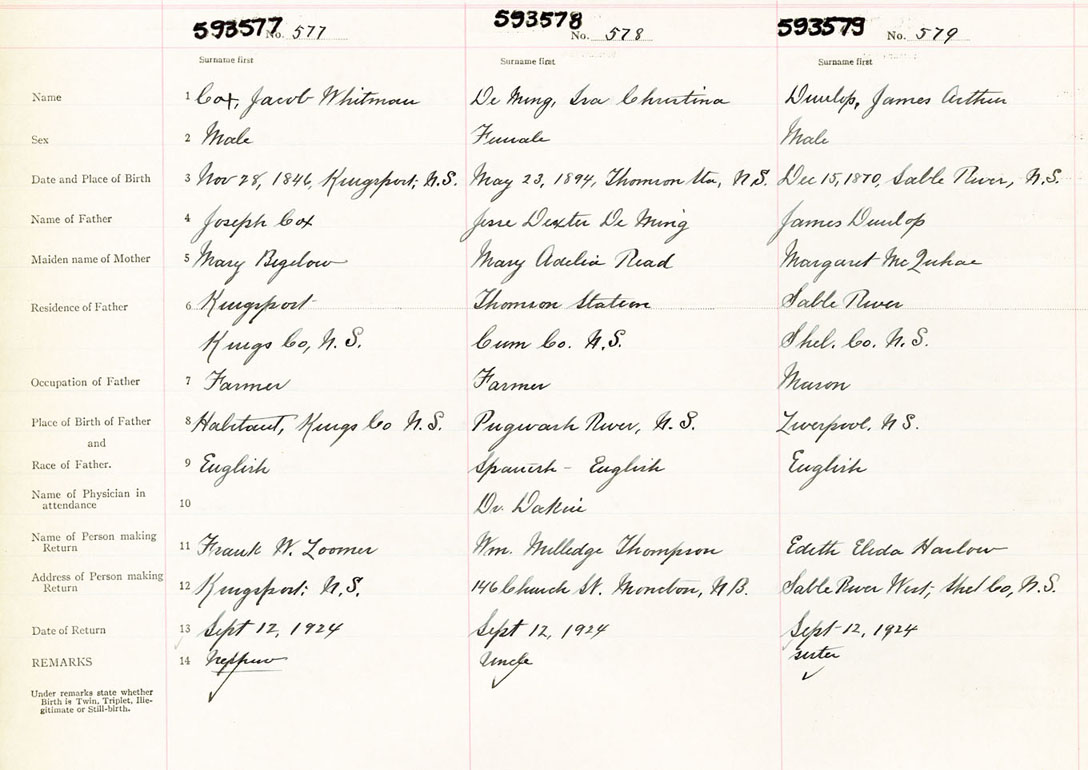 593577 No. 577 593578 No. 578 593579 No. 579
Surname first Surname first Surname first
Name 1 Cox, Jacob Whitman De Ming, Iva Christina Dunlop, James Arthur
Sex 2 Male Female Male
Date and Place of Birth 3 Nov 28, 1846, Kingsport, N.S. May 23, 1894, Thomson Sta, N.S. Dec 15, 1870, Sable River, N.S.
Name of Father 4 Joseph Cox Jesse Dexter De Ming James Dunlop
Maiden name of Mother 5 Mary Bigelow Mary Adelia Read Margaret McQuhae
Residence of Father 6 Kingsport Thomson Station Sable River
Kings Co, N.S. Cum Co. N.S. Shel. Co. N.S.
Occupation of Father 7 Farmer Farmer Mason
Place of Birth of Father 8 Habitant, Kings Co N.S. Pugwash River, N.S. Liverpool, N S.
and
Race of Father. 9 English Spanish - English English
Name of Physician in
attendance 10 Dr. Dakin
Name of Person making
Return 11 Frank W. Loomer Wm. Milledge Thompson Edith Elida Harlow
Address of Person making
Return 12 Kingsport, N.S. 146 Church St. Moncton, N B. Sable River West, Shel Co, N.S.
Date of Return 13 Sept 12, 1924 Sept 12, 1924 Sept 12, 1924
REMARKS 14 Nephew Uncle sister
Under remarks state whether
Birth is Twin, Triplet, Ille-
gitimate or Still-birth.